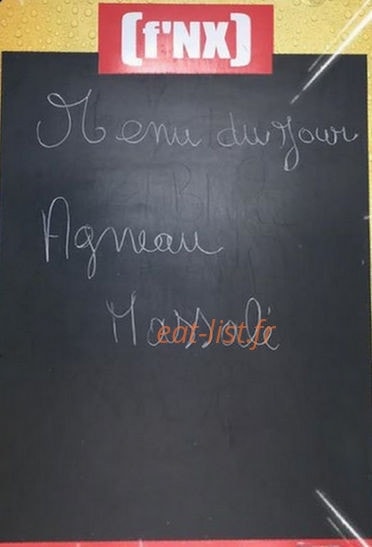 (f'NX)
Menu du Jour
Agneau
Massalé
eat-list.fr